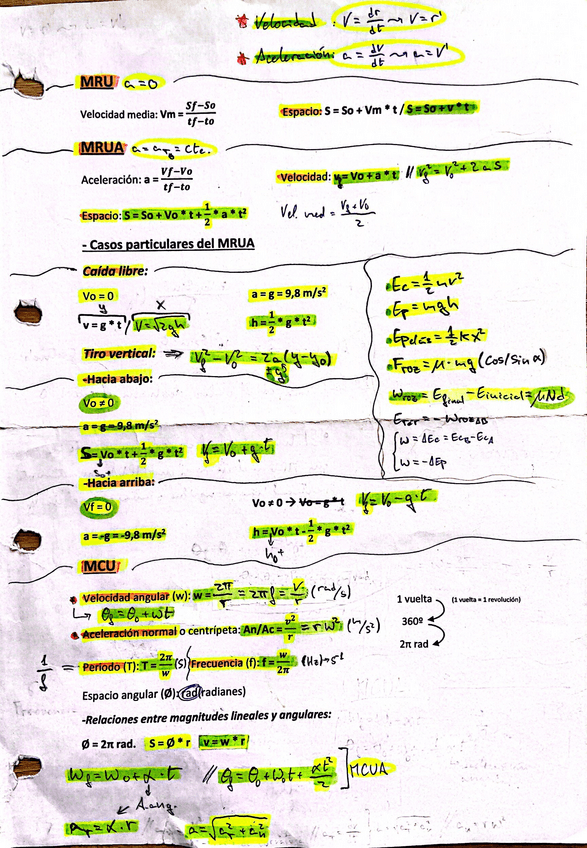 * Velocidad: V = dr/dt ⟿ V = r'
* Aceleración: a = dV/dt ⟿ a = V'
MRU a=0
Velocidad media: Vm = Sf-So/tf-to Espacio: S = So + Vm * t / S = So + v * t
MRUA a = aT = cte.
Aceleración: a = Vf-Vo/tf-to Velocidad: Vf = Vo + a * t // Vf² = Vo² + 2aS
Espacio: S = So + Vo * t + 1/2 * a * t² Vel. med = Vf+Vo/2
- Casos particulares del MRUA
Caída libre:
Vo = 0 a = g = 9,8 m/s²
y x
v = g * t / V = √2gh h = 1/2 * g * t²
Tiro vertical: ⇒ Vf² - Vo² = 2a(y-yo)
-Hacia abajo:
Vo ≠ 0
a = g = 9,8 m/s²
S = Vo * t + 1/2 * g * t² Vf = Vo + g·t
So+
-Hacia arriba:
Vf = 0 Vo ≠ 0 → Vo = g * t Vf = Vo - g·t
a = -g = -9,8 m/s² h = Vo * t - 1/2 * g * t²
ho+
Ec = 1/2 mv²
Ep = mgh
Epelás = 1/2 kx²
Froz = μ·mg (cos/sin α)
Wroz = Efinal - Einicial = μNd
W = ΔEc = EcB - EcA
W = -ΔEp
MCU
* Velocidad angular (w): w = 2π/T = 2πf = V/r (rad/s)
↳ θf = θo + wt
* Aceleración normal o centrípeta: An/Ac = v²/r = r w² (m/s²)
1/f = Período (T): T = 2π/w (S) Frecuencia (f): f = w/2π (Hz) → s⁻¹
Espacio angular (Ø): rad (radianes)
1 vuelta (1 vuelta = 1 revolución)
360º
2π rad
-Relaciones entre magnitudes lineales y angulares:
Ø = 2π rad. S = Ø * r v = w * r
Wf = Wo + α · t // θf = θo + Wo t + αt²/2 ] MCUA
A. ang.
aT = α · r a = √aT² + an²